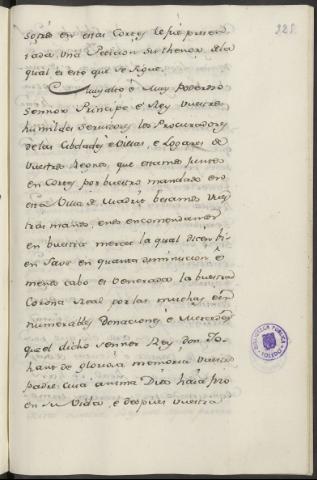 328.
sotros en estas Cortes le fue presen
tada una Peticion su thenor dela
qual es esto que se sigue.
Muy alto è Muy Poderoso
Sennor Principe è Rey vuestros
humildes servidores los Procuradores
de las Cibdades è Villas, è Logares de
vuestros Regnos, que estamos juntos
en Cortes por vuestro mandado en
esta Villa de Madrit besamos vues
tras manos, è nos encomendamos
en vuestra merced la qual dicen bi
en save en quanta diminucion è
menos cabo es venerada la vuestra
Corona Real por las muchas è in
numerables Donaciones è Mercedes
que el dicho sennor Rey don Jo
han de gloriosa memoria vuestro
padre cuia anima Dios haia fizo
en su vida, è despues vuestra
BIBLIOTECA PUBLICA
TOLEDO